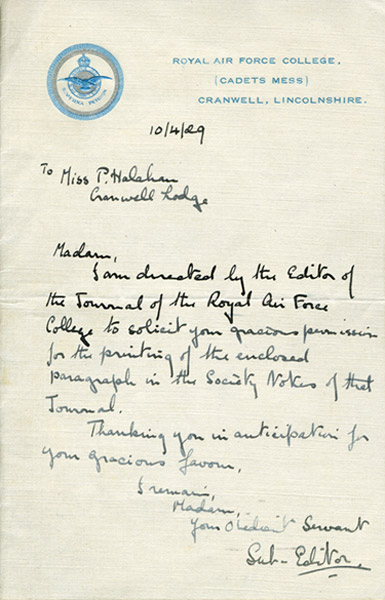 SUPERNA PETIMUS
ROYAL AIR FORCE COLLEGE,
(CADETS MESS)
CRANWELL, LINCOLNSHIRE.
10/4/29
To Miss P. Halahan
Cranwell Lodge
Madam,
I am directed by the Editor of
the Journal of the Royal Air Force
College to solicit your gracious permission
for the printing of the enclosed
paragraph in the Society Notes of that
Journal.
Thanking you in anticipation for
your gracious favour,
I remain,
Madam,
Your Obedient Servant
Sub-Editor.